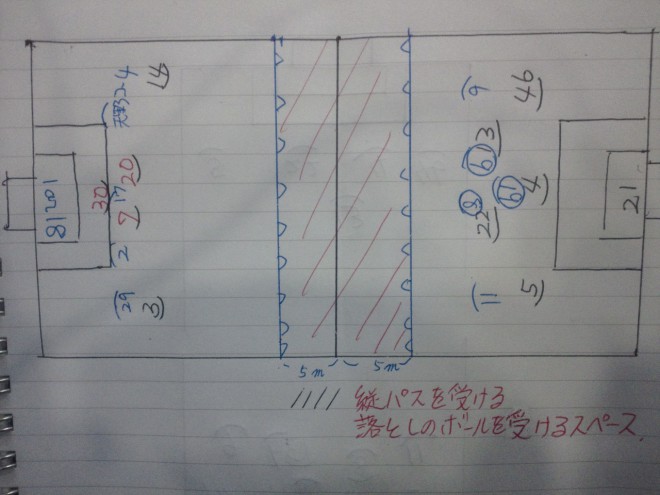 46
9
3
61
61
4
8
22
21
11
5
コーチ
14
20
17
30
7
2
29
3
5m
5m
//// 縦パスを受ける
落としのボールを受けるスペース.